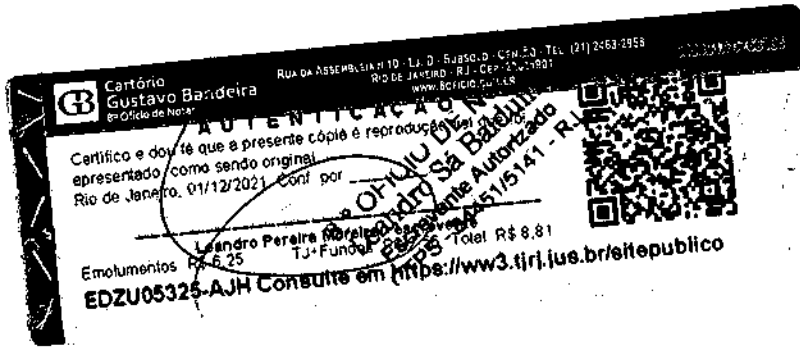 Cartório
Gustavo Bandeira
8º Ofício de Notas
RUA DA ASSEMBLEIA Nº 10 - LJ. D - SUBSOLO - CENTRO - TEL. (21) 2463-2956
RIO DE JANEIRO - RJ - CEP:
WWW.8OFICIO.COM.BR
AUTENTICAÇÃO
Certifico e dou fé que a presente cópia é reprodução
apresentado como sendo original
Rio de Janeiro, 01/12/2021 Conf. por
Leandro Pereira Moreira
Emolumentos R$ 6,25 TJ+Fundos Total R$ 8,81
EDZU05325-AJH Consulte em https://ww3.tjrj.jus.br/sitepublico
8º OFÍCIO DE
Leandro Sá
Escrevente Autorizado
CTPS - 84451/5141 - RJ